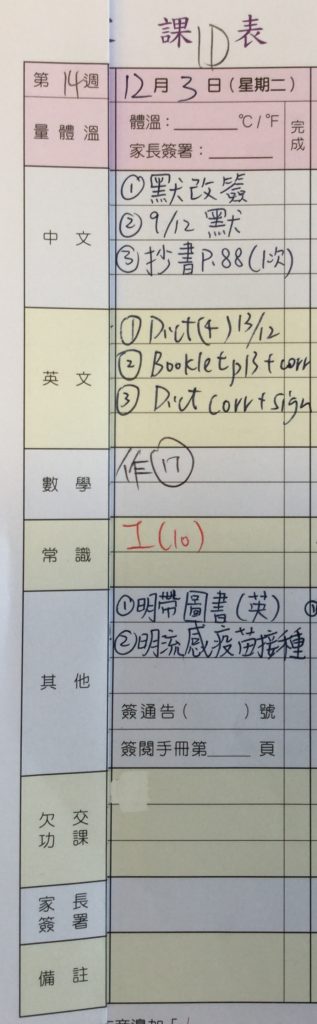 課1D表
第14週 12月3日(星期二)
量體溫 體溫:______℃/℉ 完成
家長簽署:______
中文
①默改簽
②9/12 默
③抄書P.88(1次)
英文
①Dict(4)13/12
②Booklet p13+corr
③Dict corr+sign
數學 作⑰
常識 工(10)
其他
①明帶圖書(英)
②明流感疫苗接種
簽通告( )號
簽閱手冊第____頁
欠交功課
家長簽署
備註